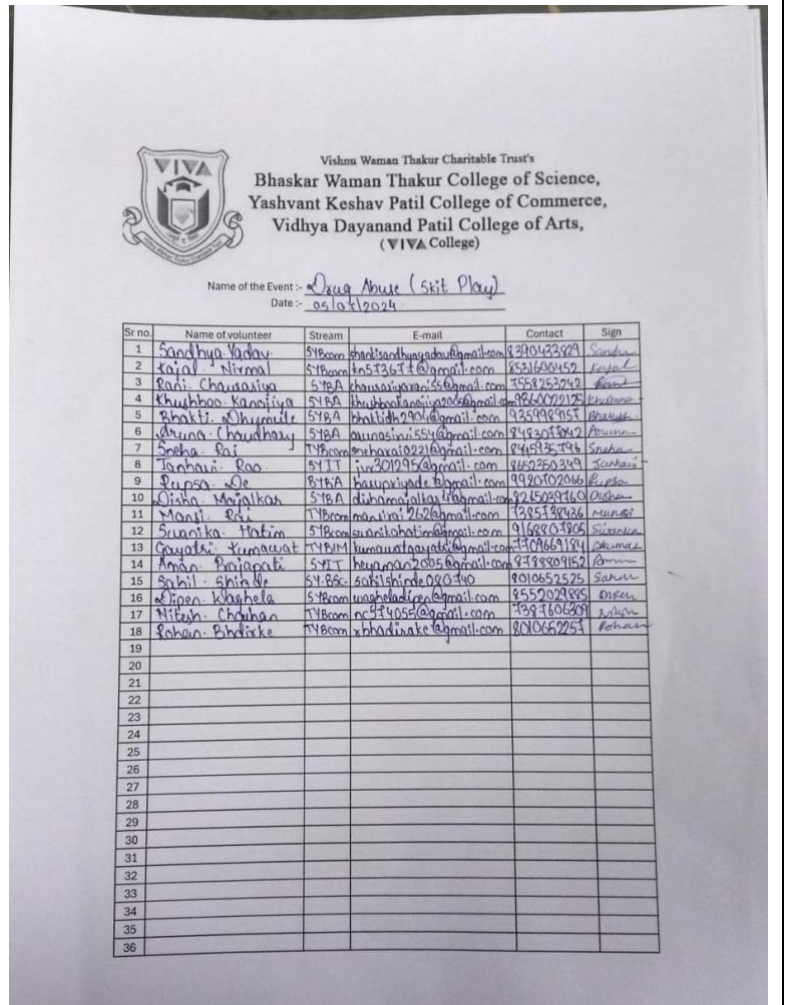 VIVA
Vishnu Waman Thakur Charitable Trust's
Bhaskar Waman Thakur College of Science,
Yashvant Keshav Patil College of Commerce,
Vidhya Dayanand Patil College of Arts,
(VIVA College)
Name of the Event :- Drug Abuse (Skit Play)
Date :- 05/07/2024
Sr no. Name of volunteer Stream E-mail Contact Sign
1 Sandhya Yadav SYBcom shantisandhyayadav@gmail.com 8390433829
2 Kajal Nirmal SYBcom kn573677@gmail.com 8531606452 Kajal
3 Rani Chausasiya SYBA 7558253242 Rani
4 Khushboo Kanojiya SYBA 9860022125
5 Bhakti Dhumile SYBA bhaktidh2904@gmail.com 9359989157
6 Aruna Choudhary SYBA arunasirvi554@gmail.com 8483077042
7 Sneha Rai TYBcom sneharai0221@gmail.com 8445935796 Sneha
8 Tanhavi Rao SYIT jrv301295@gmail.com 8652350349
9 Rupsa De BYBA basupriyade@gmail.com 9920702066 Rupsa
10 Disha Majalkar SYBA 8265039760 Disha
11 Mansi Rai TYBcom mansirai262@gmail.com 7385738436 Mansi
12 Suanika Hatim SYBcom suanikahatim@gmail.com 9168807805
13 Gayatri Kumawat TYBIM kumawatgayatri@gmail.com 7709669184
14 Aman Prajapati SYIT heyaman2005@gmail.com 8788809152
15 Sahil Shinde SY.BSc. sahilshinde080740 8010652525
16 Dipen Waghela SYBcom wagheladipen@gmail.com 8552029885 Dipen
17 Nitesh Chouhan TYBcom nc974055@gmail.com 7387606309
18 Rohan Bhdirke TYBcom 8010652257 Rohan
19
20
21
22
23
24
25
26
27
28
29
30
31
32
33
34
35
36